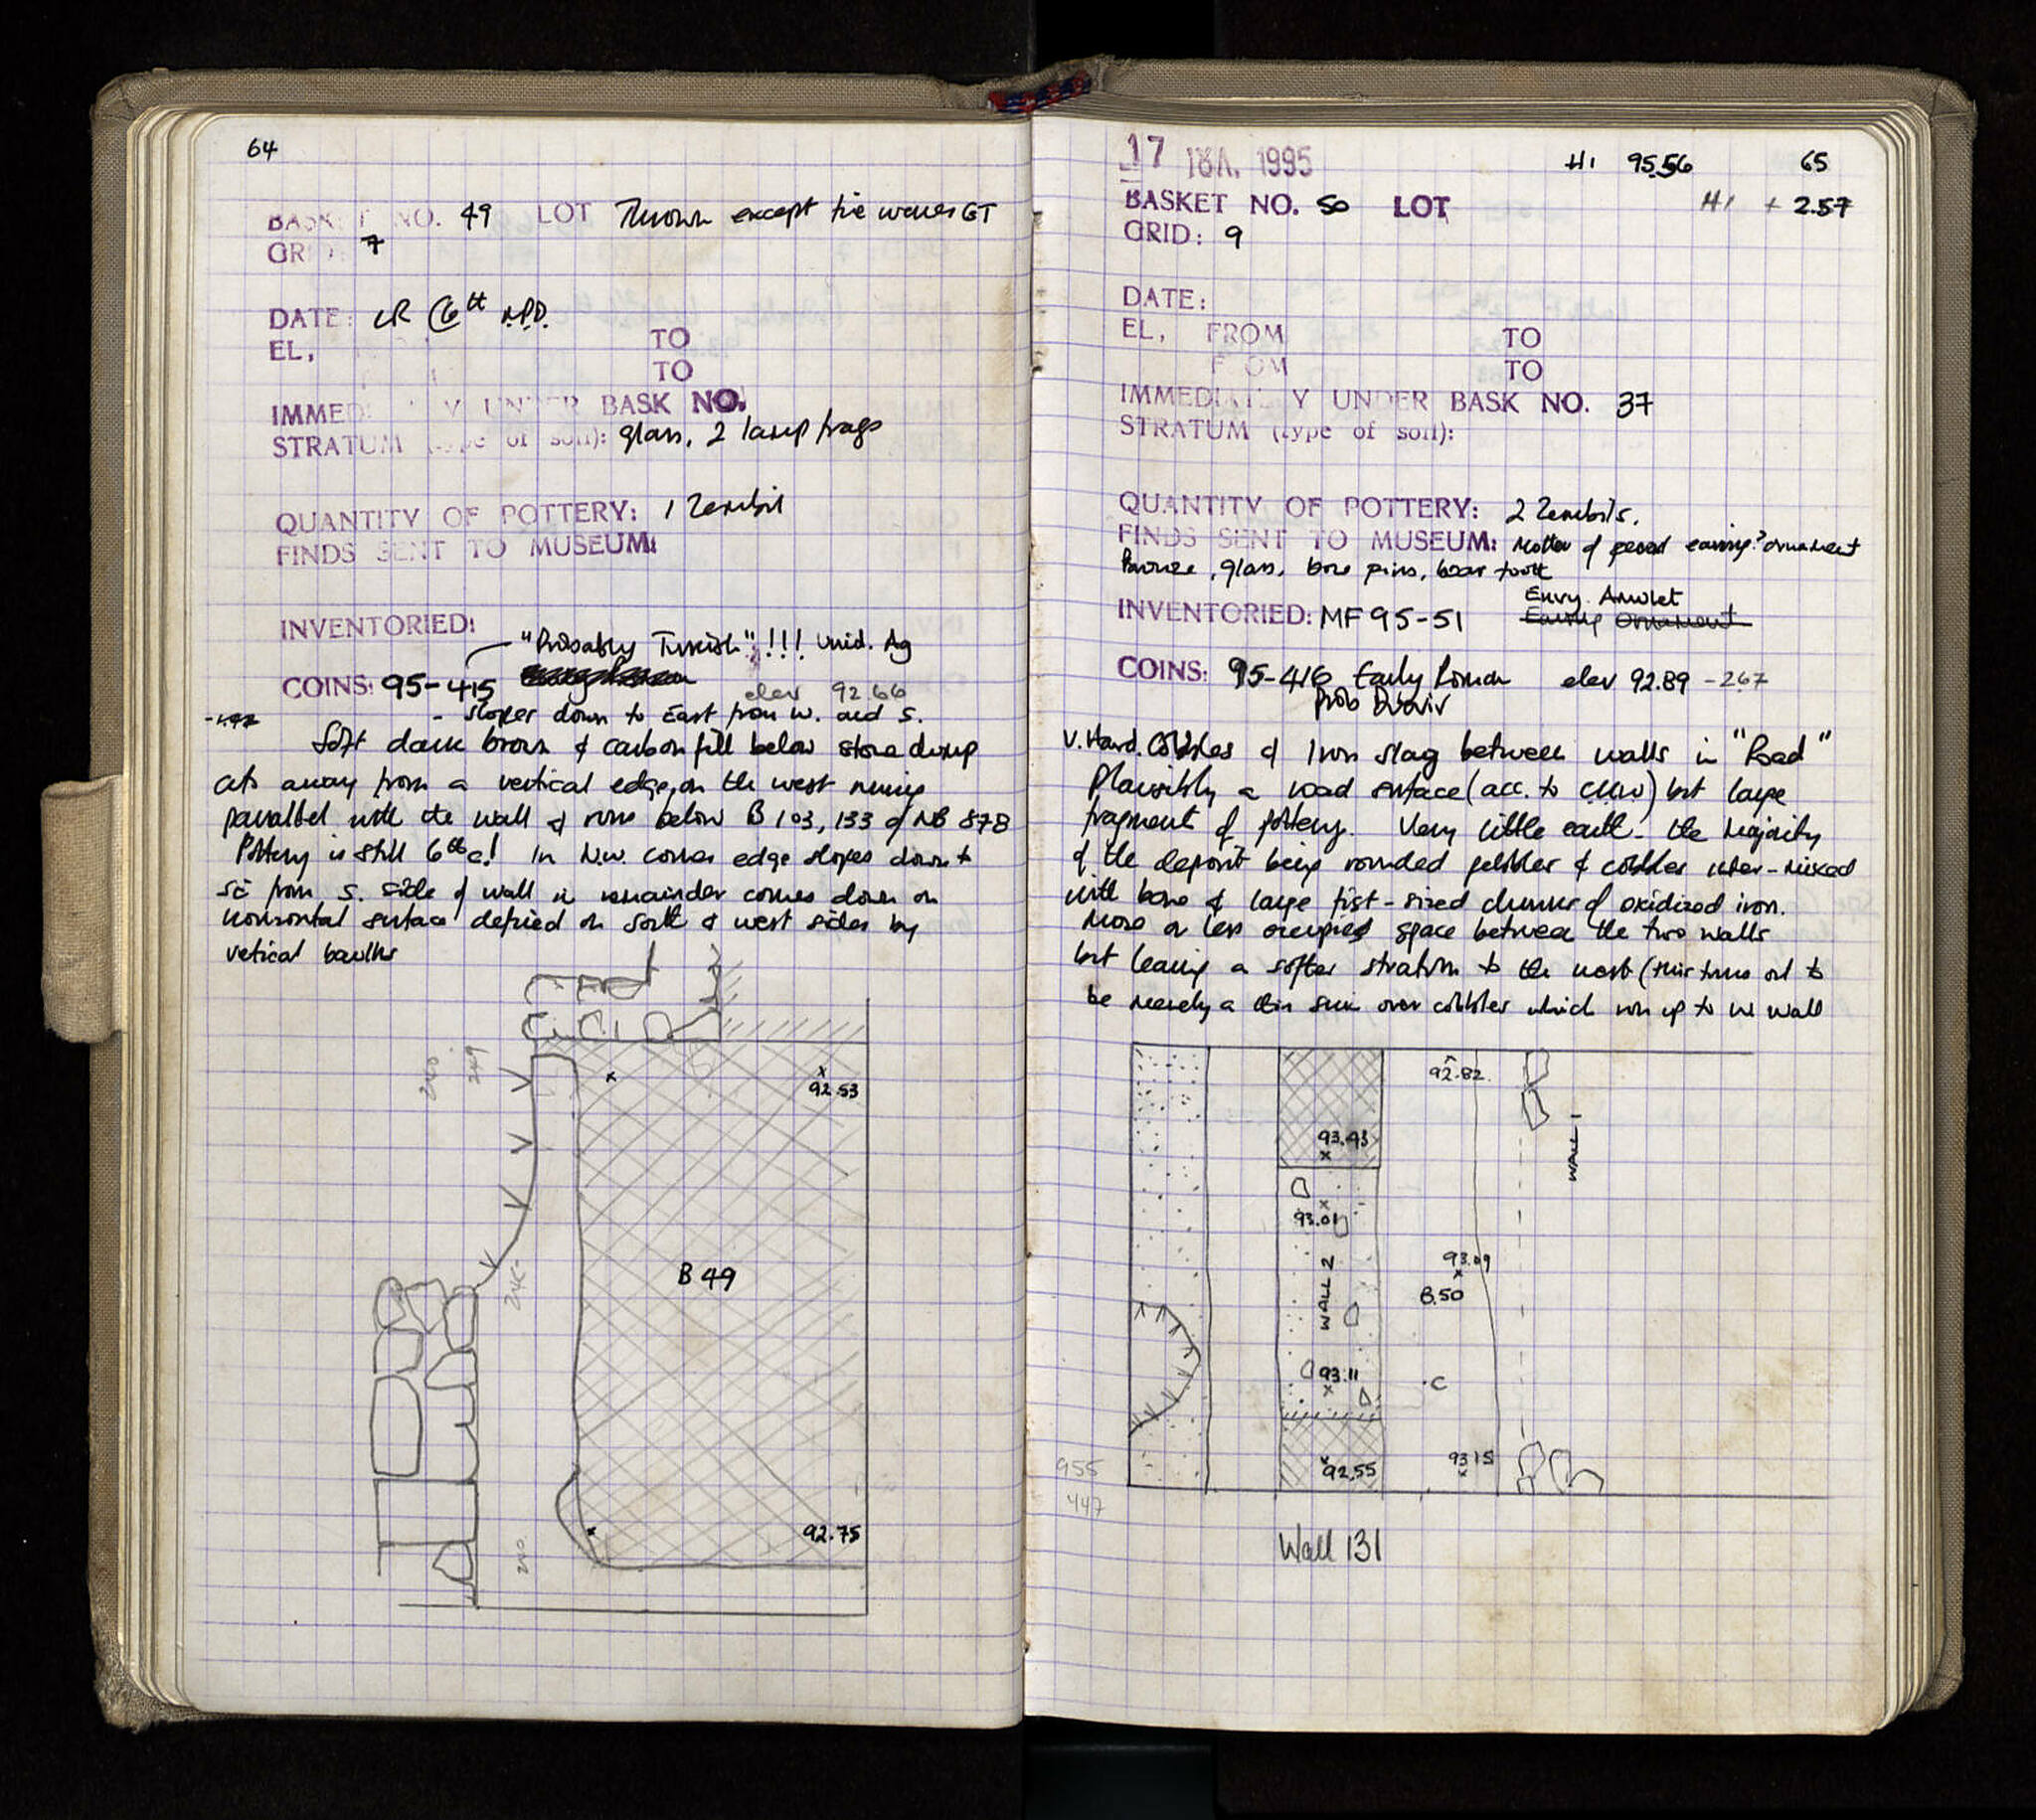 64
BASKET NO. 49 LOT Thrown except tie waves GT
GRID: 7
DATE: LR C6th A.D.
EL,
TO
TO
IMMED Y UNDER BASK NO.
STRATUM (type of soil): glass, 2 lamp frags
QUANTITY OF POTTERY: 1 Zembil
FINDS SENT TO MUSEUM:
INVENTORIED:
"Probably Turkish" !!! Unid. Ag
COINS: 95-415 elev 92.66
- slopes down to East from W. and S.
Soft dark brown & carbon fill below stone dump
cuts away from a vertical edge, on the west running
parallel with the wall & runs below B 103, 133 of NB 878
Pottery is still 6th c! In N.W. corner edge slopes down to
SE from S. side of wall in remainder comes down on
horizontal surface defined on south & west sides by
vetical baulks
240
249
92.53
B 49
92.75
240
17 ΙΟΛ. 1995
HI 95.56
65
BASKET NO. 50 LOT
HI + 2.57
GRID: 9
DATE:
EL, FROM TO
FROM TO
IMMEDIATELY UNDER BASK NO. 37
STRATUM (type of soil):
QUANTITY OF POTTERY: 2 Zembils.
FINDS SENT TO MUSEUM: Mother of pearl earring? ornament
Bronze, glass, bone pins, boar tooth
Envy. Amulet
INVENTORIED: MF 95-51 Earring Ornament
COINS: 95-416 Early Roman elev 92.89 -267
prob Duovir
V. Hard. Cobbles & Iron slag between walls in "Road"
Plausibly a road surface (acc. to CKW) but large
fragment of pottery. Very little earth - the majority
of the deposit being rounded pebbles & cobbles inter-mixed
with bone & large fist-sized chunks of oxidized iron.
More or less occupies space between the two walls
but leaving a softer stratum to the west (this turns out to
be merely a thin skin over cobbles which run up to W wall
92.82
93.43
WALL 1
93.01
93.09
WALL 2
B.50
93.11
C
93.15
92.55
955
447
Wall 131